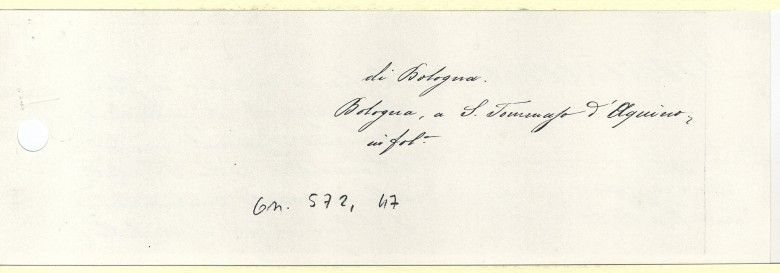 di Bologna.
Bologna, a S. Tommaso d'Aquino,
in fol.
Gn. 572, 47